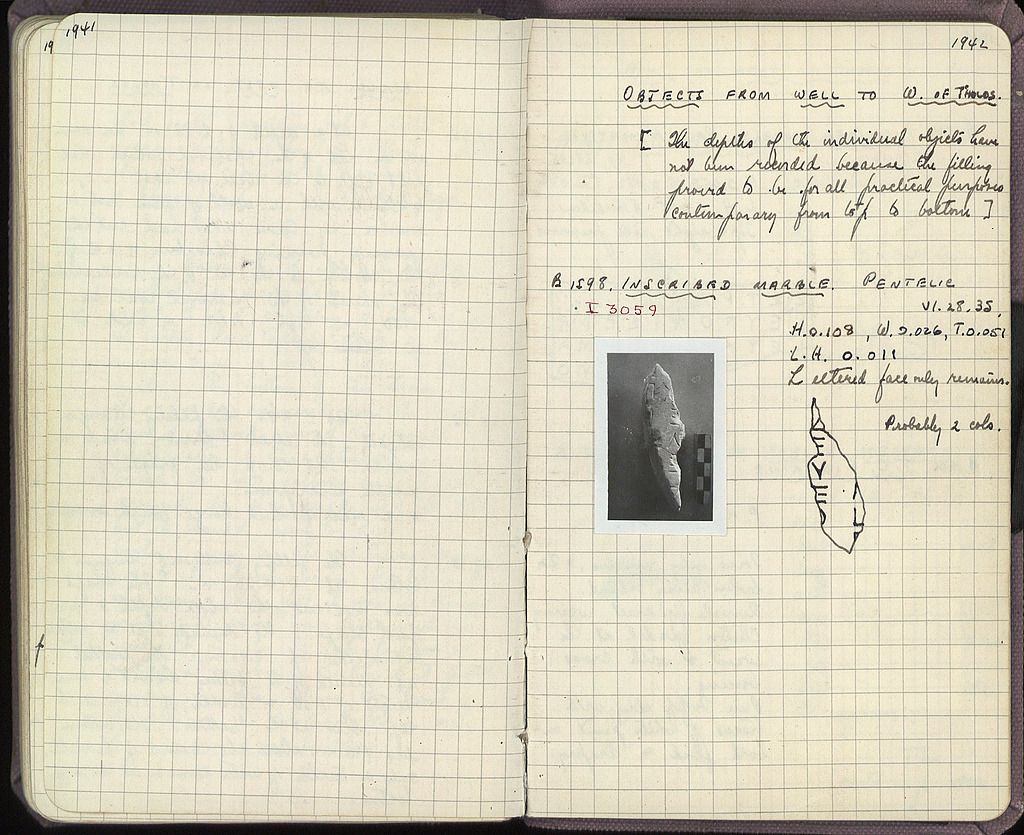 1941
19
1942
OBJECTS FROM WELL TO W. OF THOLOS.
[ The depths of the individual objects have
not been recorded because the filling
proved to be for all practical purposes
contemporary from top to bottom ]
B 1598. INSCRIBED MARBLE. PENTELIC
· I 3059
VI. 28. 35.
H. 0.108, W. 0.026, T. 0.051
L. H. 0.011
Lettered face only remains.
Probably 2 cols.